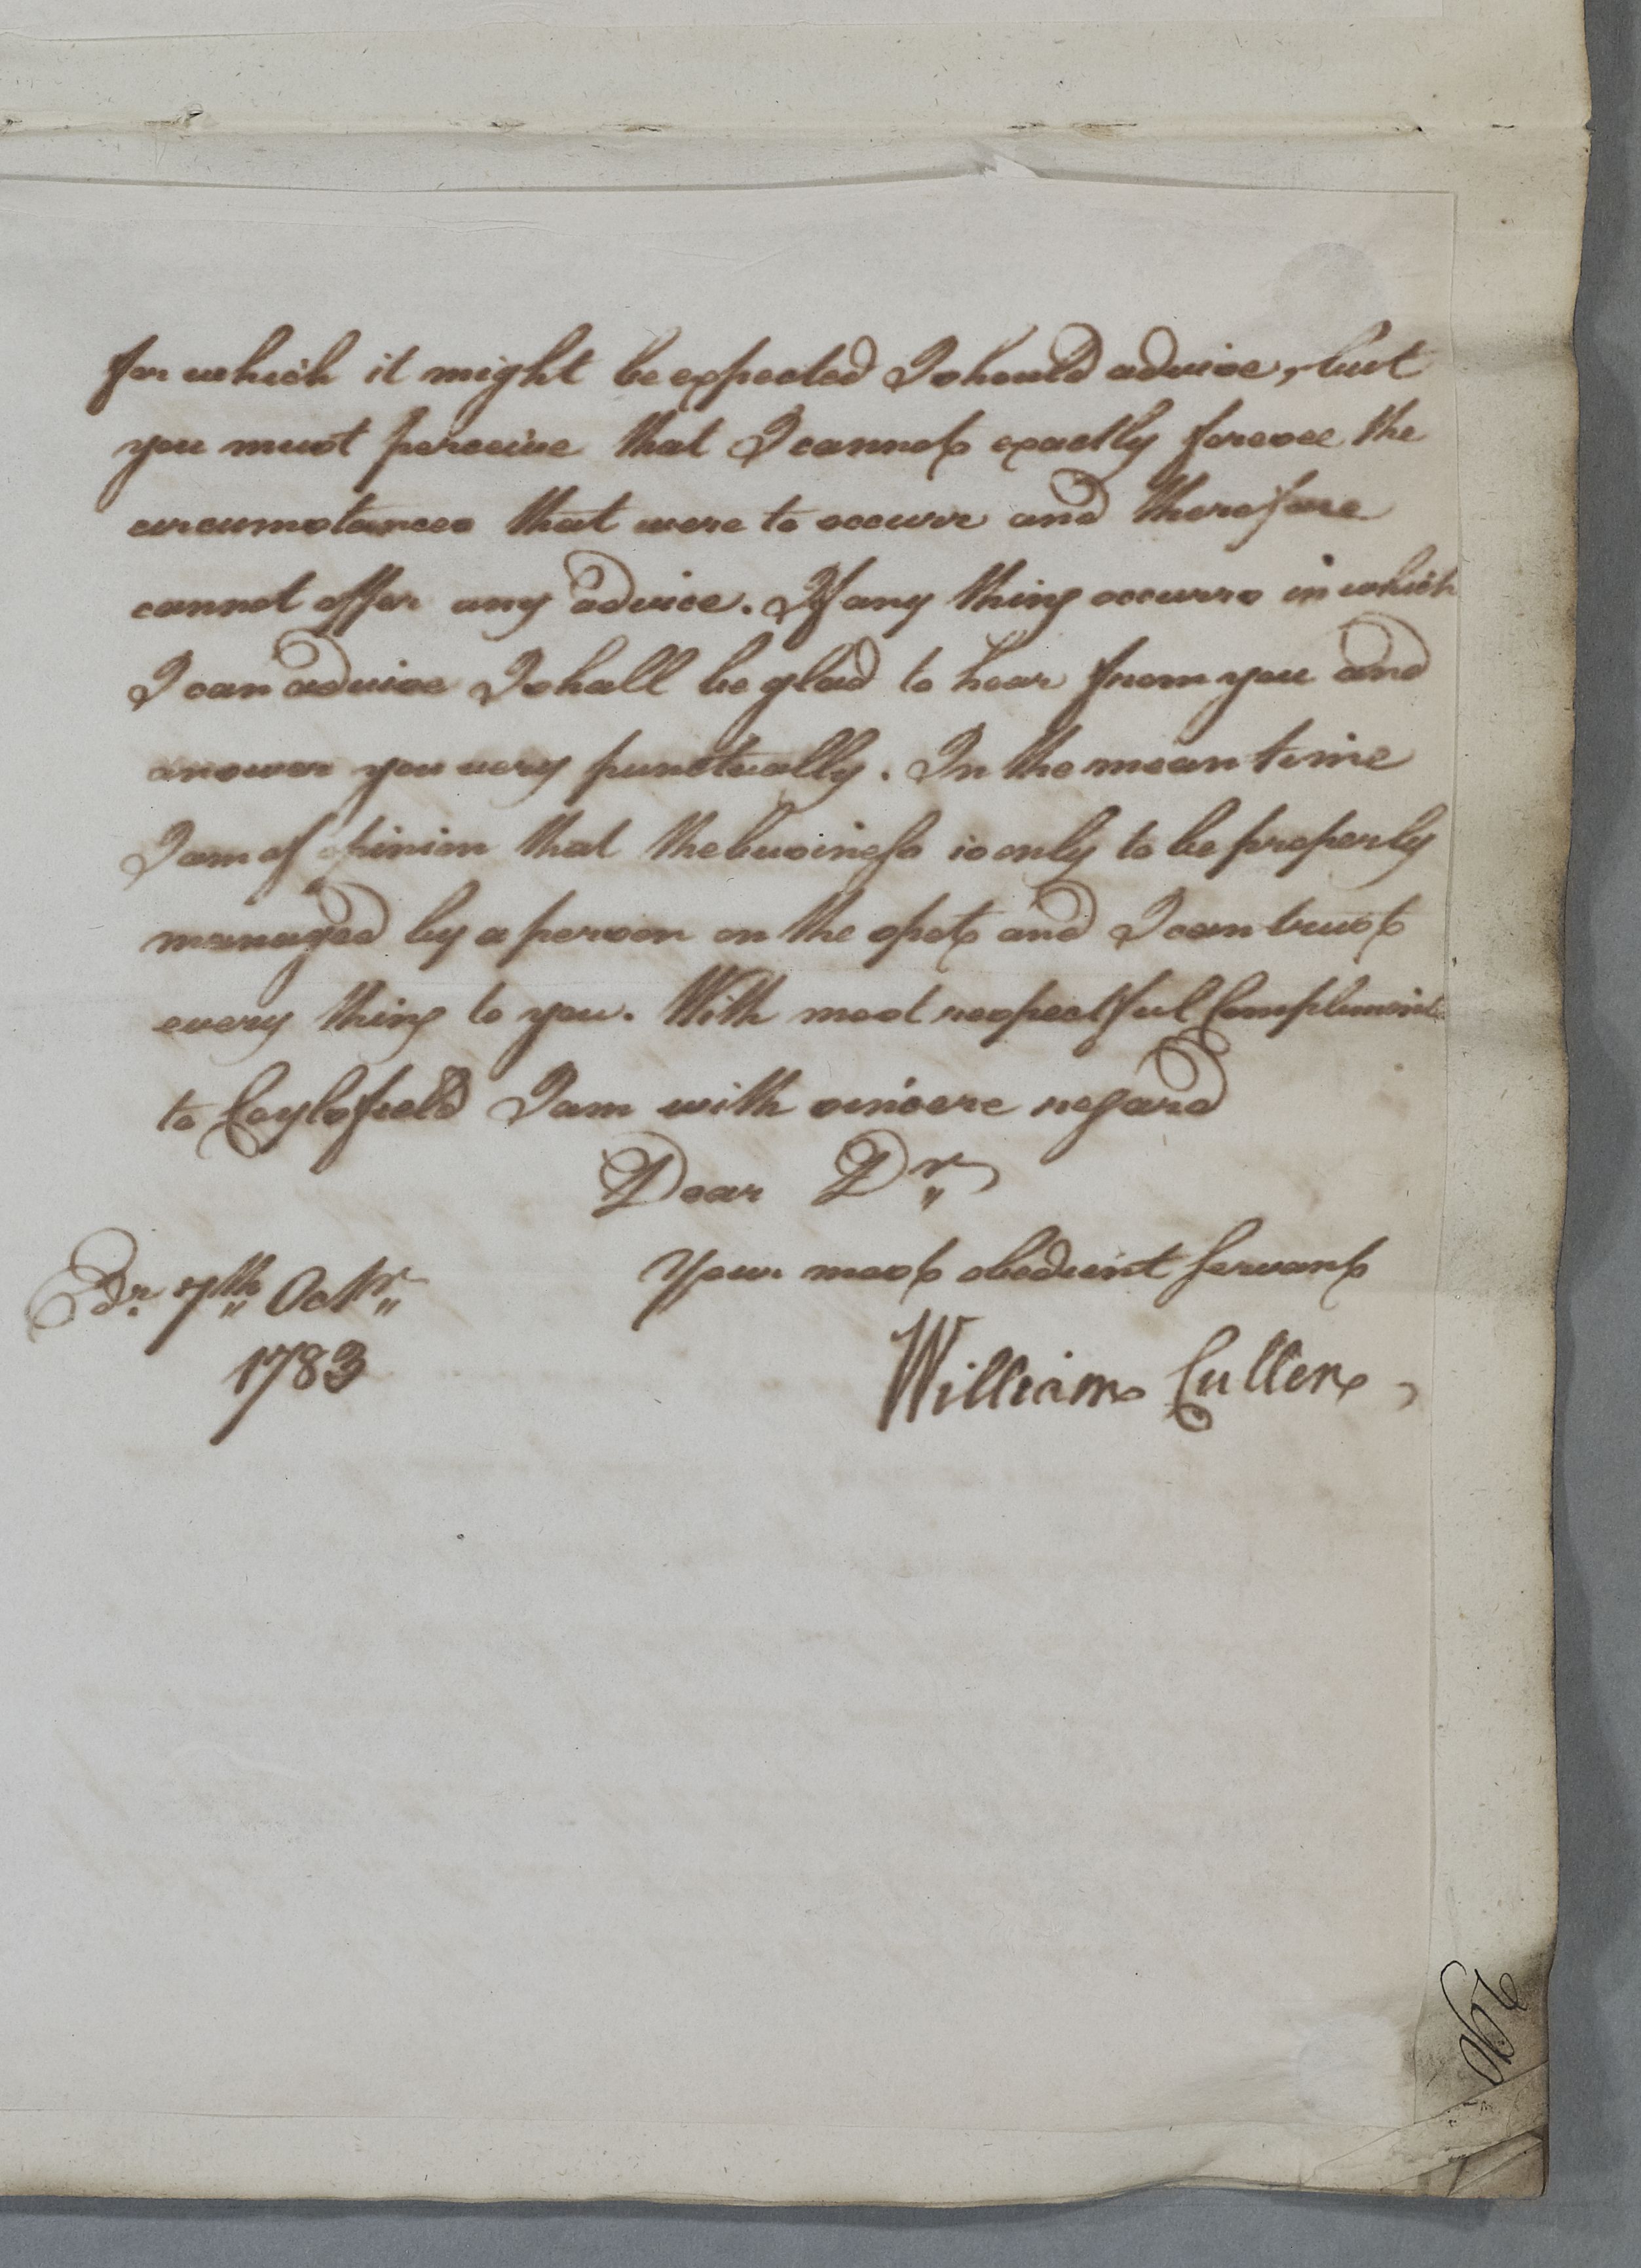 for which it might be expected I should advise, but
you must perceive that I cannot exactly foresee the
circumstances that were to occurr and therefore
cannot offer any advice. If any thing occurrs in which
I can advise I shall be glad to hear from you and
answer you very punctually. In the mean time
I am of opinion that the business is only to be properly
managed by a person on the spot and I can trust
every thing to you. With most respectful Compliments
to Caylsfield I am with sincere regard
Dear Dr
Your most obedient servant
Edr. 7th Octr
1783
William Cullen